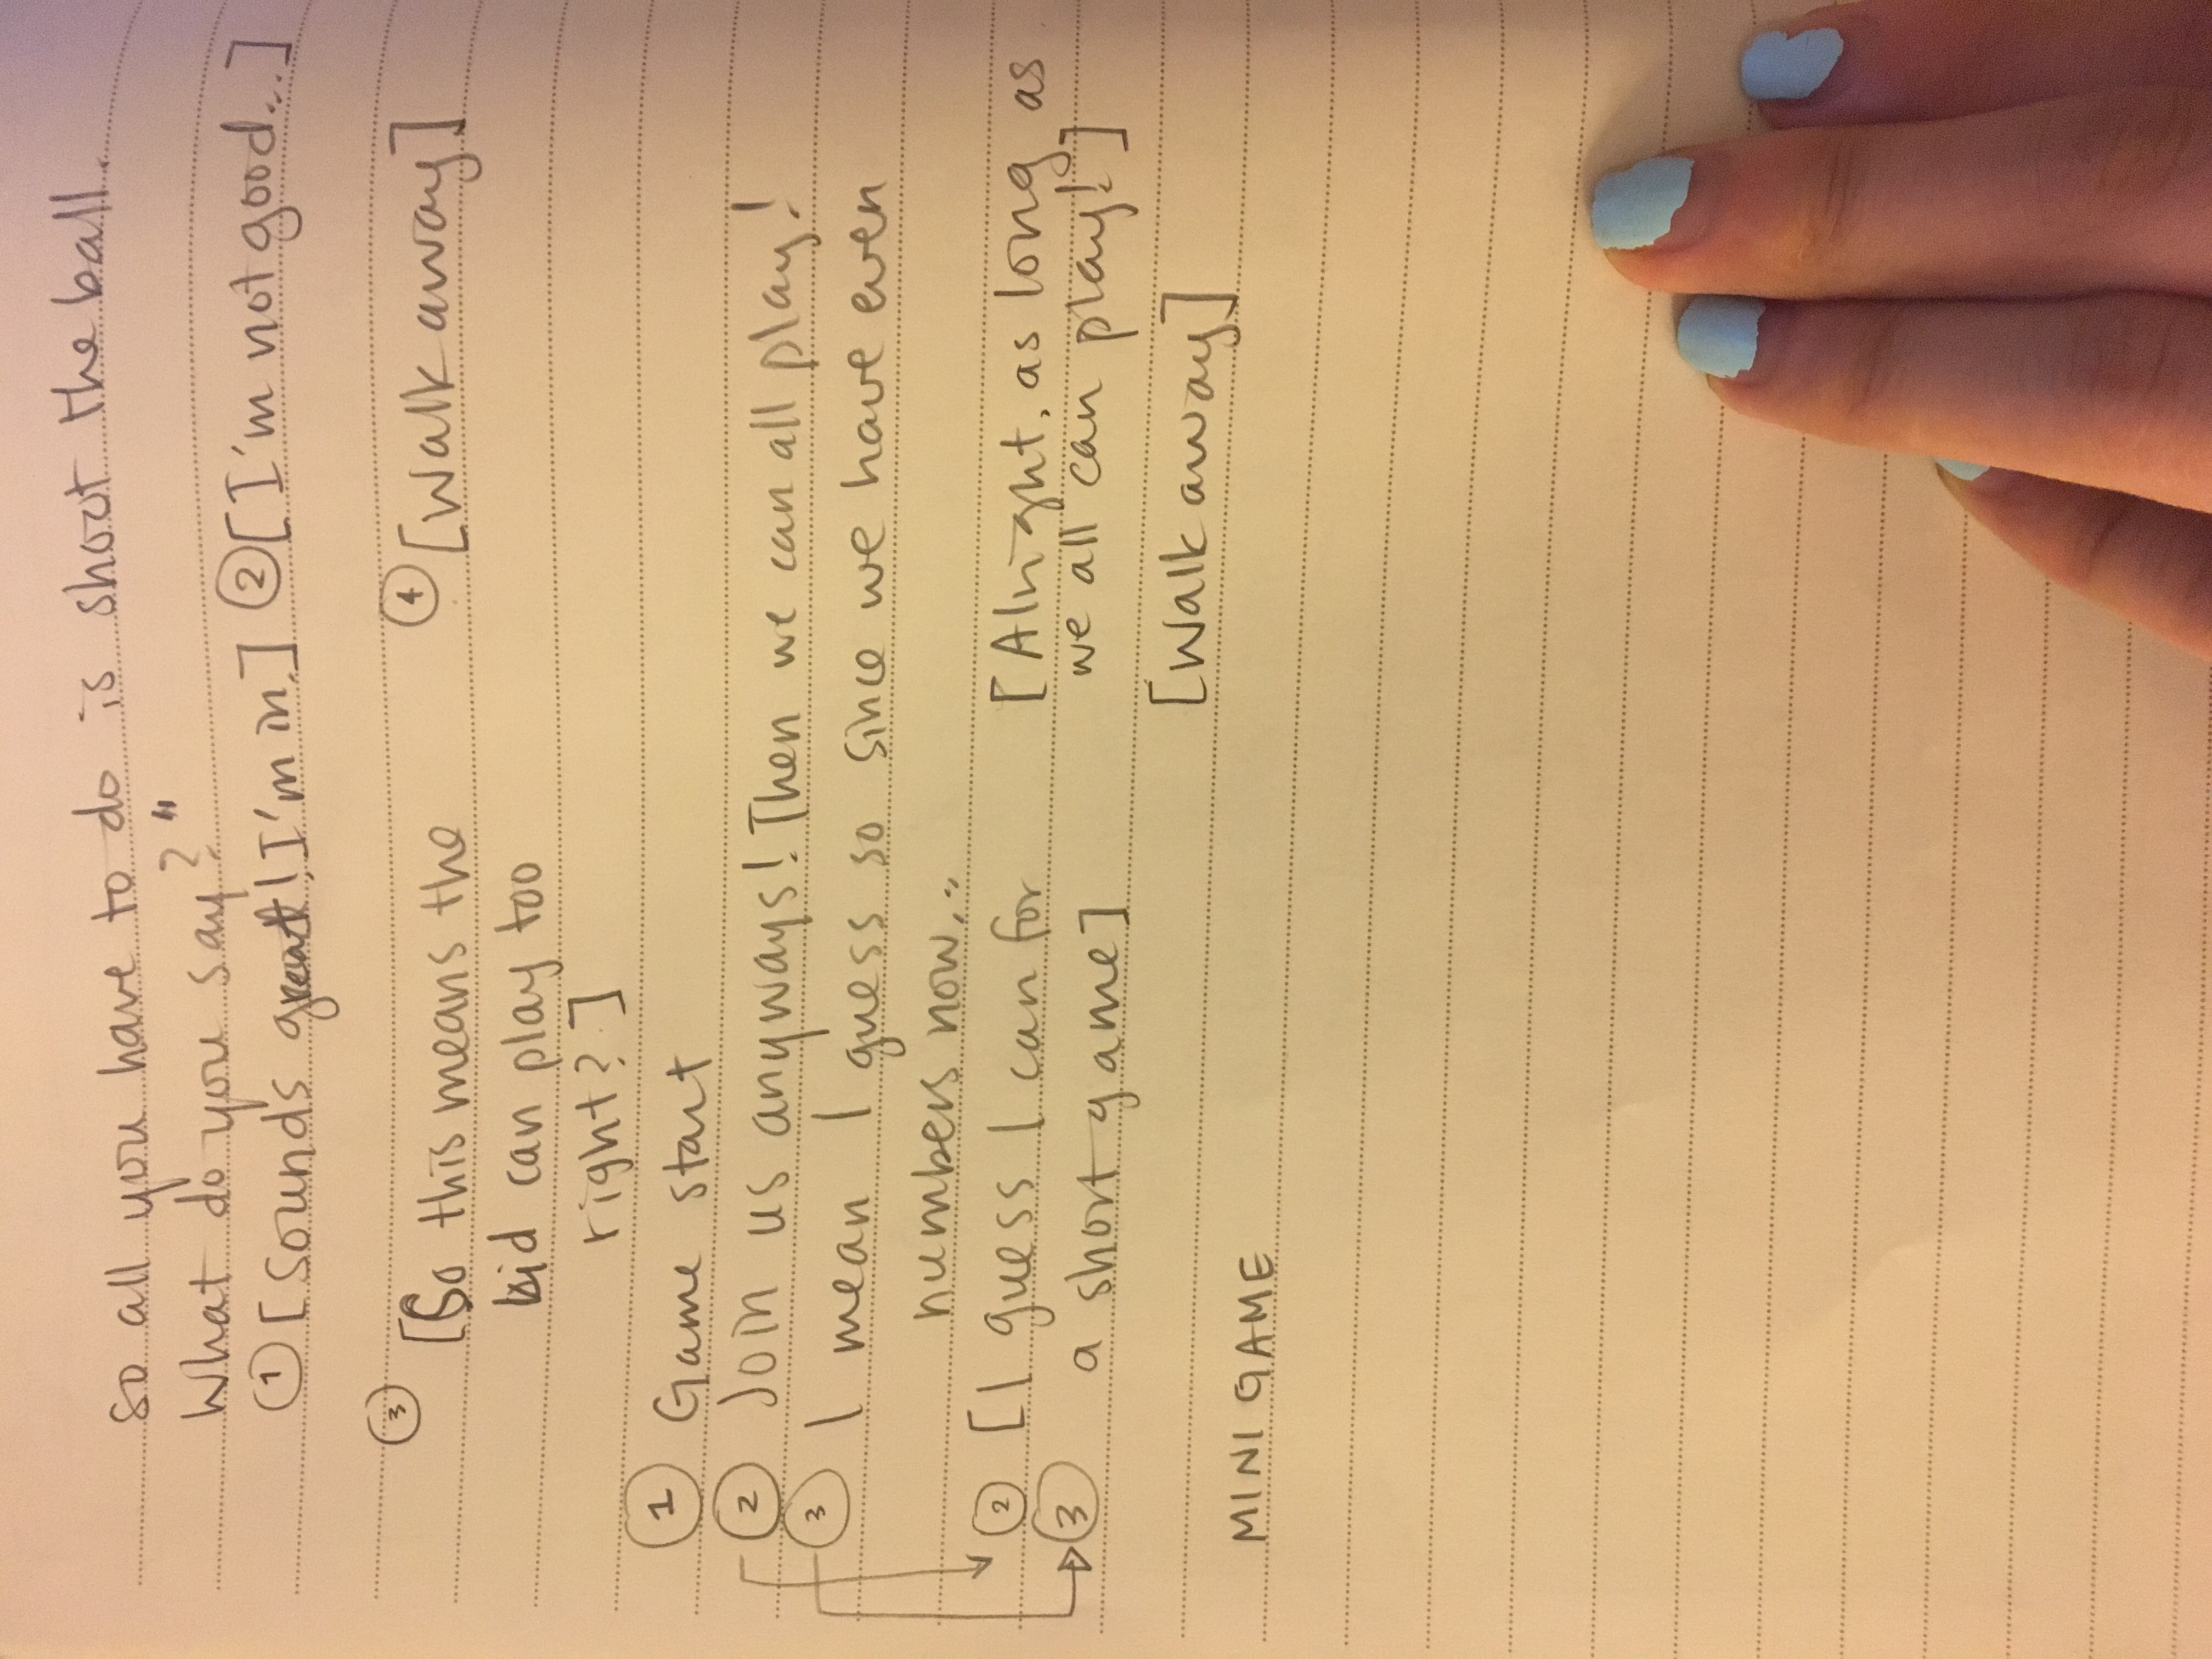 so all you have to do is shoot the ball.
What do you say?"
① [Sounds great! I'm in.] ② [I'm not good...]
③ [So this means the
kid can play too
right?]
④ [Walk away]
① Game start
② Join us anyways! Then we can all play!
③ I mean I guess so since we have even
numbers now...
② [I guess I can for
③ a short game]
[Alright, as long as
we all can play!]
[Walk away]
MINI GAME